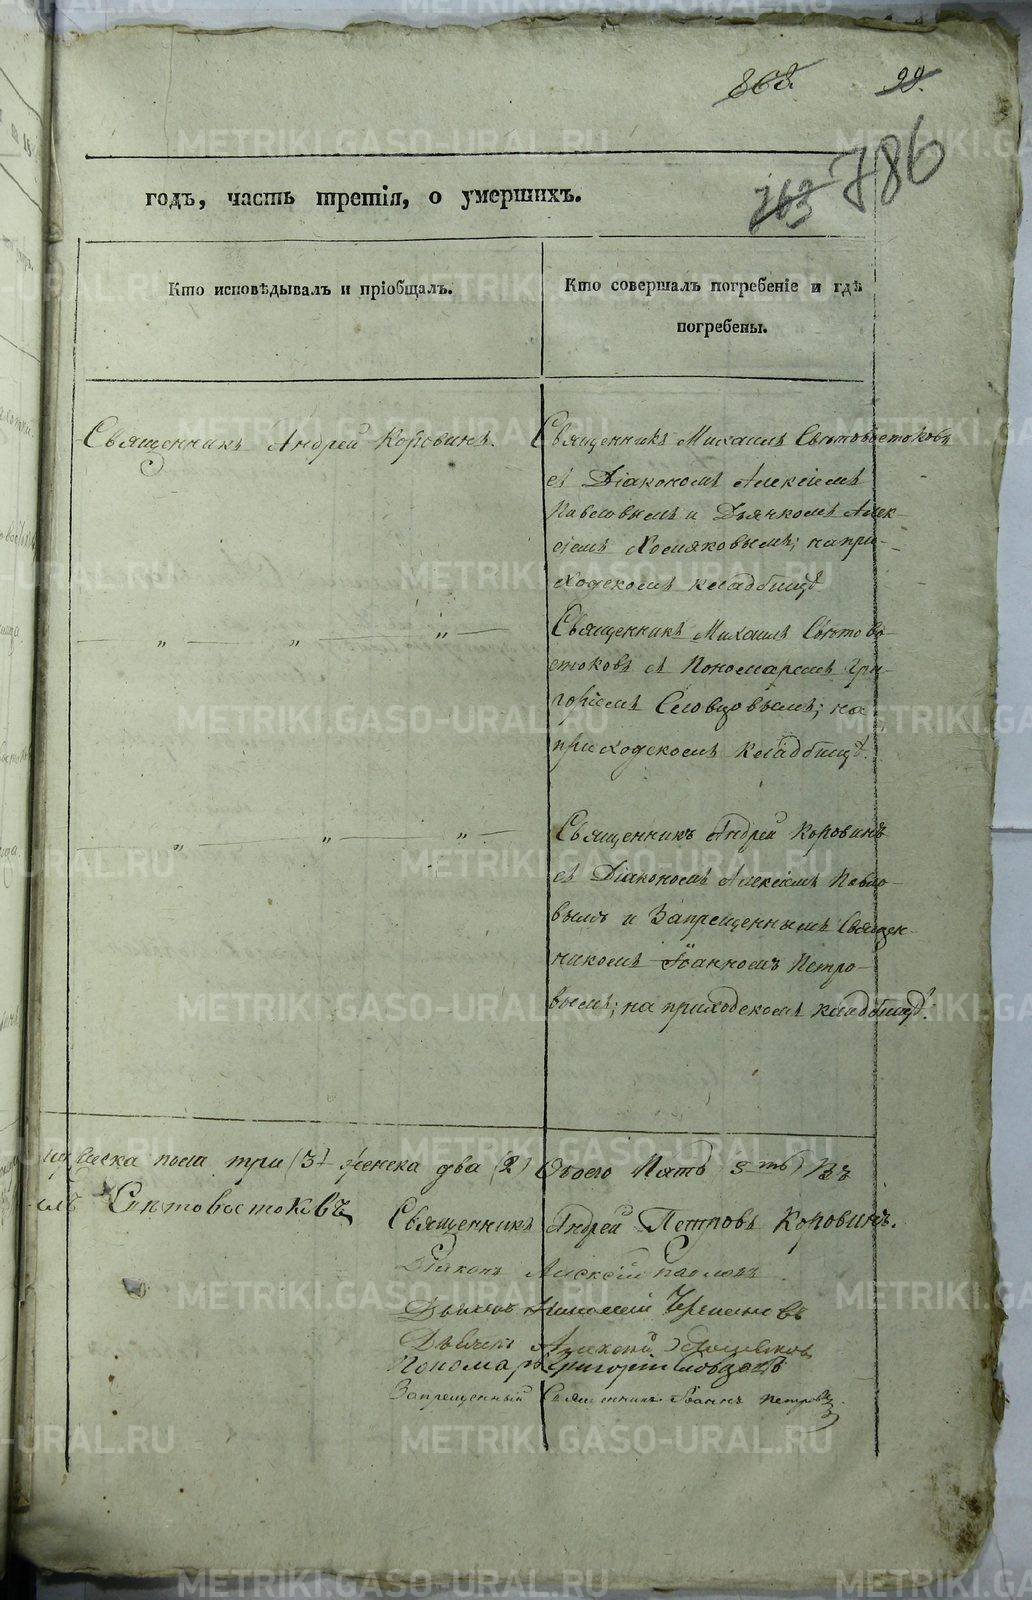 863. 99.
763 786
годъ, часть третія, о умершихъ.
Кто исповѣдывалъ и пріобщалъ.
Кто совершалъ погребеніе и гдѣ
погребены.
Священникъ Андрей Коровинъ.
Священникъ Михаилъ Свѣтовостоковъ
съ Діакономъ Алексіемъ
Павловымъ и Дьячкомъ Алек-
сіемъ Хомяковымъ; на при-
ходскомъ кладбищѣ
— „ — „ „ —
Священникъ Михаилъ Свѣтово-
стоковъ съ Пономаремъ Гри-
горіемъ Словцовымъ; на
приходскомъ кладбищѣ.
„ — „ — „ —
Священникъ Андрей Коровинъ
съ Діакономъ Алексіемъ Павло-
вымъ и Запрещеннымъ Священ-
никомъ Іоанномъ Петро-
вымъ; на приходскомъ кладбищѣ.
пола три (3) женска два (2) Обоего Пять
Свѣтовостоковъ
Священникъ Андрей Петровъ Коровинъ.
Діаконъ Алексій Павловъ
Дьячекъ
Дьячекъ Алексій Хомяковъ
Пономарь Григорій Словцовъ
Запрещенный Священникъ Іоаннъ Петровъ.
METRIKI.GASO-URAL.RU